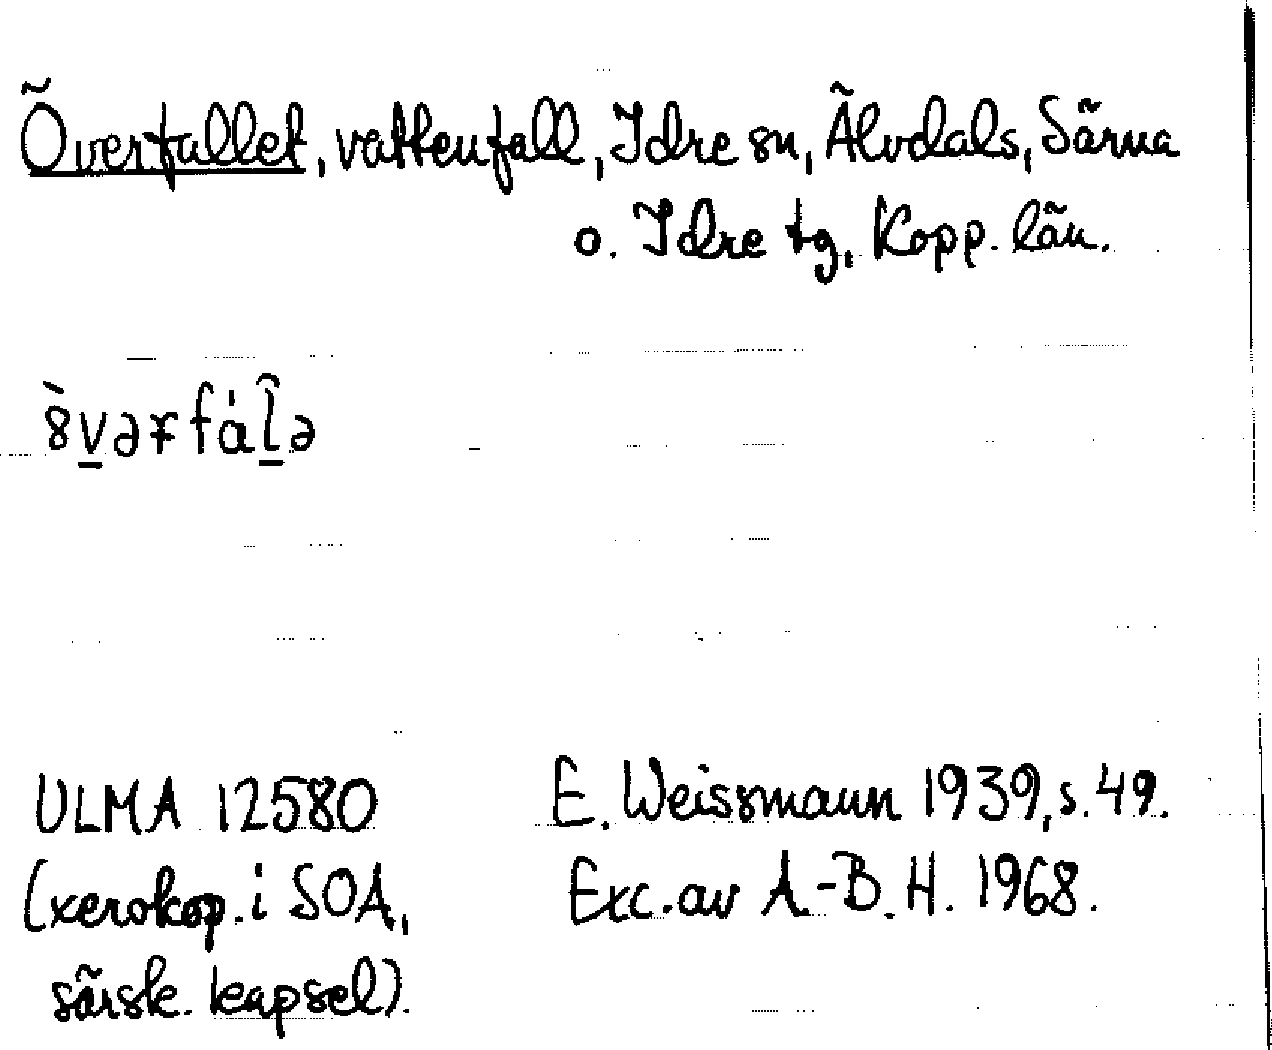 Överfallet, vattenfall, Idre sn, Älvdals, Särna
o. Idre tg, Kopp. län.
ULMA 12580
E. Weissmann 1939, s. 49.
(xerokop. i SOA,
Exc. av A.-B. H. 1968.
särsk. kapsel).